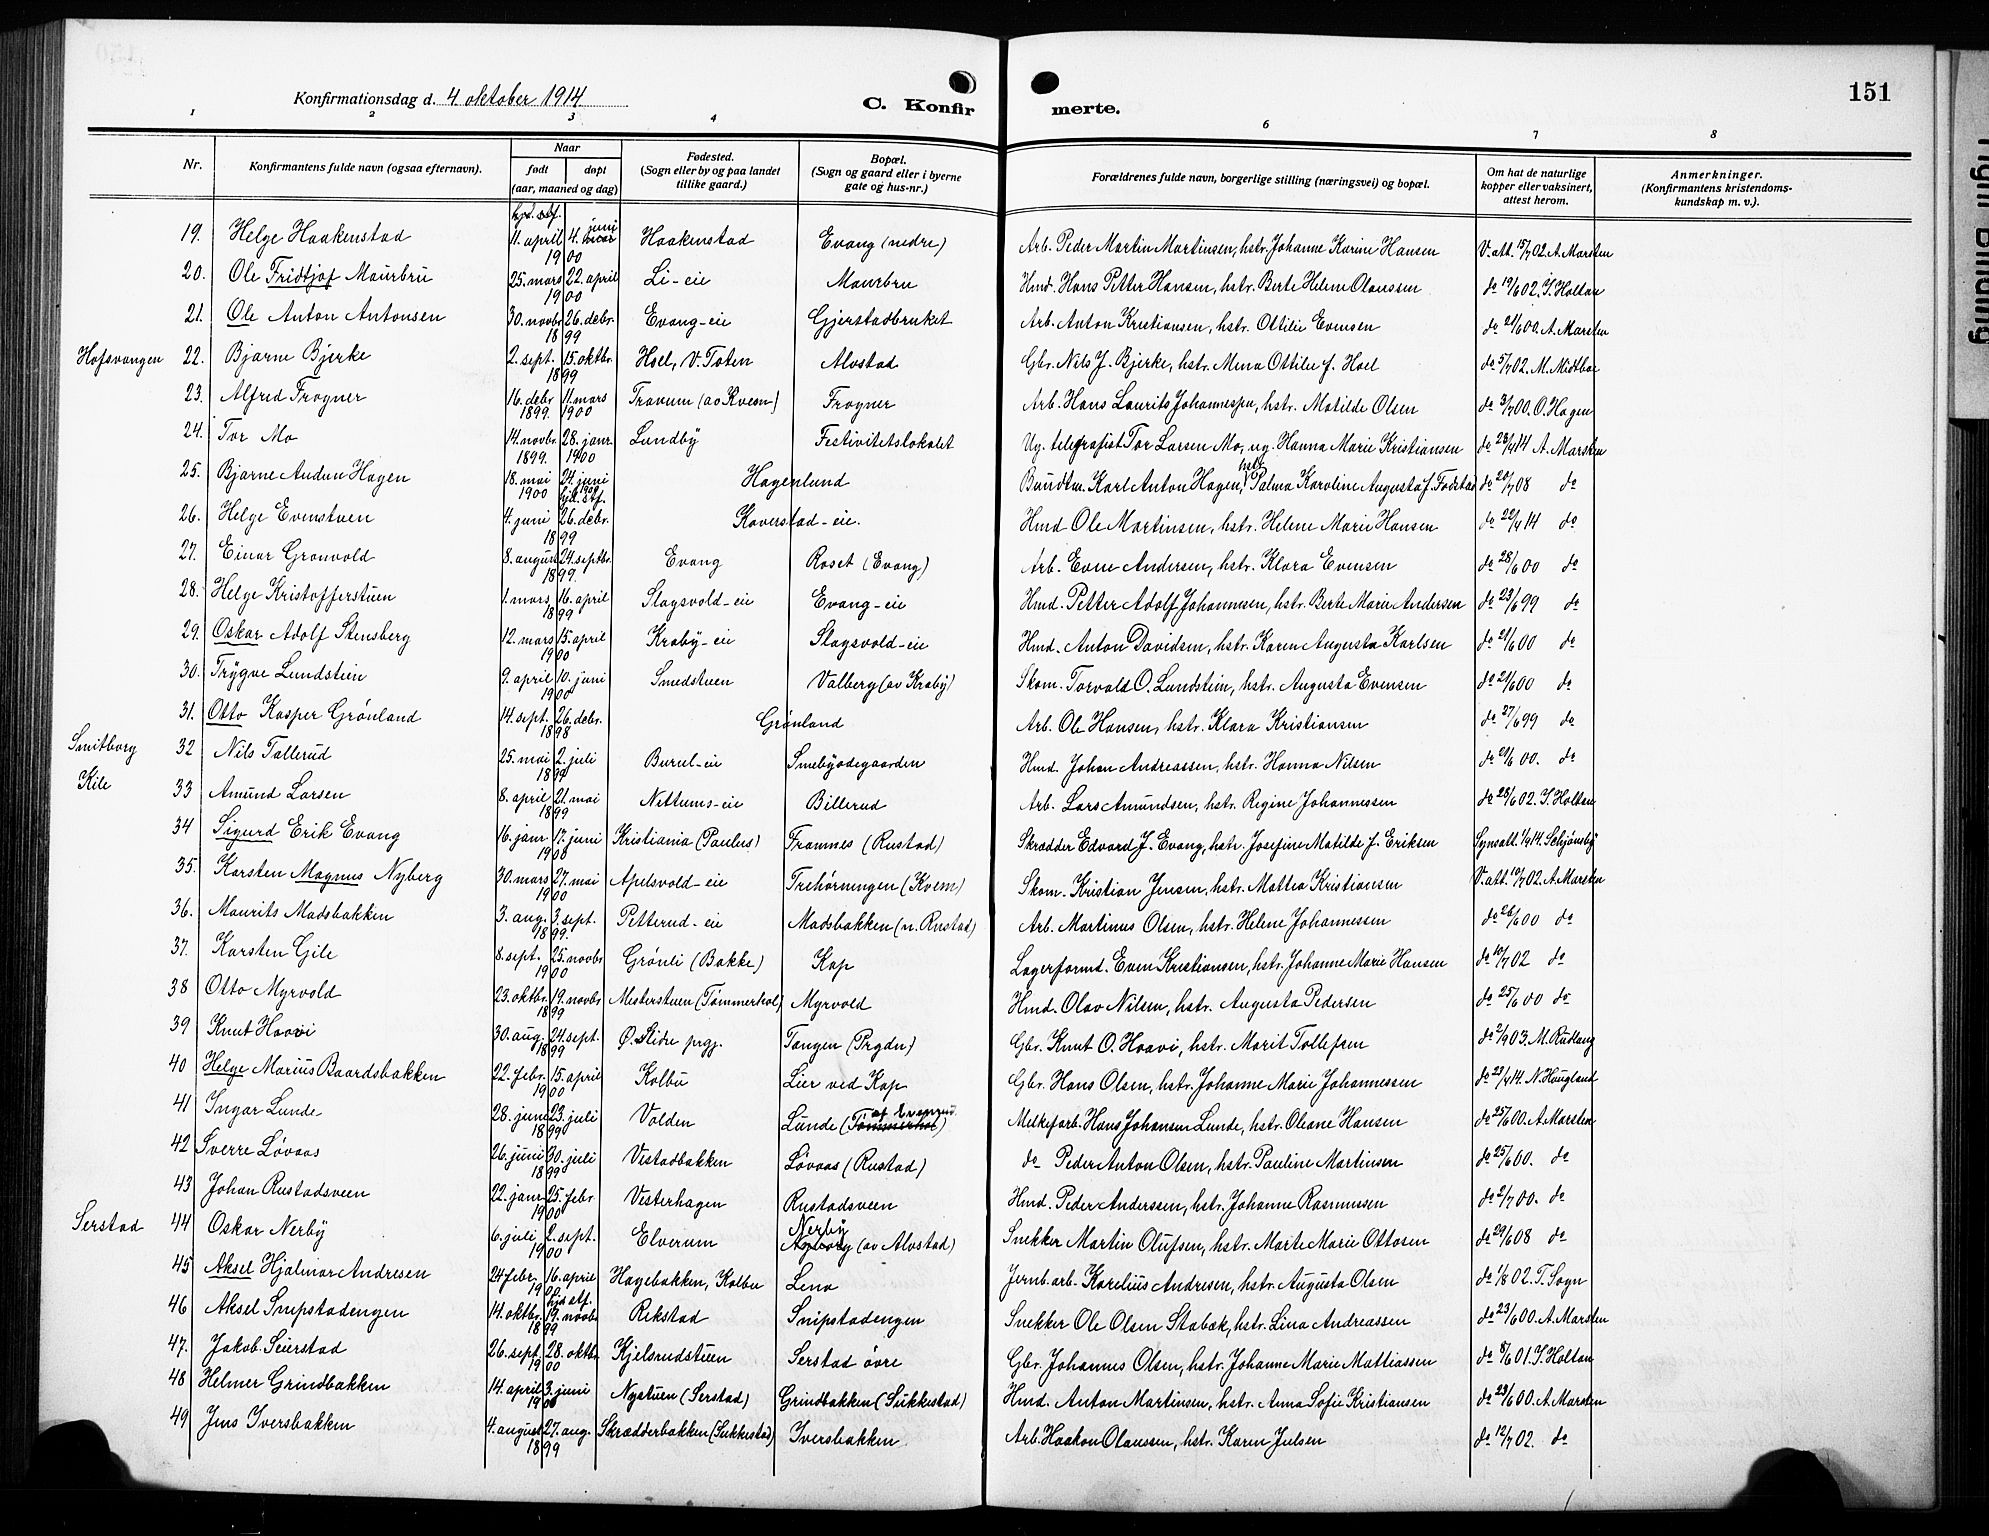 151
Konfirmationsdag d. 4 oktober 1914
C. Konfirmerte.
1 2 3 4 6 7 8
Nr. Konfirmantens fulde navn (ogsaa efternavn). Naar født døpt (aar, maaned og dag) Fødested. (Sogn eller by og paa landet tillike gaard.) Bopæl. (Sogn og gaard eller i byerne gate og hus-nr.) Forældrenes fulde navn, borgerlige stilling (næringsvei) og bopæl. Om hat de naturlige kopper eller vaksinert, attest herom. Anmerkninger. (Konfirmantens kristendomskundskap m. v.).
19. Helge Haakenstad 11. april 4. juni 1900 Haakenstad Evang (nedre) Arb. Peder Martin Martinsen, hstr. Johanne Karine Hansen V. att. 15/7 02. A. Marsten
20. Ole Fridtjof Maurbru 25. mars 22. april 1900 Li-eie Maurbru Hmd. Hans Petter Hansen, hstr. Berte Helene Olaussen do 19/6 02. J. Holtan
21. Ole Anton Antonsen 30. novbr. 26. debr. 1899 Evang-eie Gjerstadbruket Arb. Anton Kristiansen, hstr. Ottilie Evensen do 21/6 00. A. Marsten
Hofsvangen 22. Bjarne Bjerke 2. sept. 15. oktbr. 1899 Hoel, V. Toten Alvstad Gbr. Nils J. Bjerke, hstr. Mina Ottilie f. Hoel do 5/7 02. M. Midtbøe
23. Alfred Frogner 16. debr. 1899. 11. mars 1900 Travum (av Kvem) Frogner Arb. Hans Laurits Johannessen, hstr. Matilde Olsen do 3/7 00. O. Hagen
24. Tor Mo 14. novbr. 1899. 28. janr. 1900 Lundby Festivitetslokalet Ug. telegrafist Tor Larsen Mo, ug. Hanna Marie Kristiansen do 23/4 14 A. Marsten
25. Bjarne Audun Hagen 18. mai 1900 24. juni 1900 Hagenlund Bundtm. Karl Anton Hagen, hstr. Palma Karoline Augusta f. Fodstad do 20/7 08 do
26. Helge Evenstuen 4. juni 26. debr. 1899 Kaverstad-eie. Hmd Ole Martinsen, hstr. Helene Marie Hansen do 22/4 14 do
27. Einar Grønvold 8. august 24. septbr. 1899. Evang Roset (Evang) Arb. Even Andersen, hstr. Klara Evensen do 28/6 00 do
28. Helge Kristofferstuen 1. mars 16. april 1899 Slagsvold-eie Evang-eie Hmd. Petter Adolf Johannesen, hstr. Berte Marie Andersen do 23/6 99 do
29. Oskar Adolf Stensberg 12. mars 15. april 1900 Kraby-eie Slagsvold-eie Hmd. Anton Davidsen, hstr. Karen Augusta Karlsen do 21/6 00 do
30. Trygve Lundstein 9. april 10. juni 1900 Smedstuen Valberg (av Kraby) Skom. Torvald O. Lundstein, hstr. Augusta Evensen do 21/6 00 do
31. Otto Kasper Grønland 14. sept. 26. debr. 1898 Grønland Arb. Ole Hansen, hstr. Klara Kristiansen do 27/6 99 do
Smitborg 32 Nils Tallerud 25. mai 2. juli 1899 Burul-eie Smebyødegaarden Hmd. Johan Andreassen, hstr. Hanna Nilsen do 21/6 00. do
Kile 33 Amund Larsen 8. april 21. mai 1899 Nettums-eie Billerud Arb. Lars Amundsen, hstr. Regine Johannessen do 28/6 02. J. Holtan
34 Sigurd Erik Evang 16. janr. 17. juni 1900 Kristiania (Paulus) Framnes (Rustad) Skrædder Edvard J. Evang, hstr. Josefine Matilde f. Eriksen Synsatt. 1/9 14. Schjønsby
35. Karsten Magnus Nyberg 30. mars 27. mai 1900 Apelsvold-eie Trehørningen (Kvem) Skom. Kristian Jensen, hstr. Mattea Kristiansen V. att. 10/7 02. A. Marsten
36. Maurits Madsbakken 3. aug. 3. sept. 1899. Petterud-eie Madsbakken (n. Rustad) Arb. Martinus Olsen, hstr. Helene Johannessen do 26/6 00 do
37. Karsten Gile 8. sept. 25. novbr 1900 Grønli (Bakke) Kap Lagerformd. Even Kristiansen, hstr. Johanne Marie Hansen do 10/7 02 do
38 Otto Myrvold 23. oktbr. 19. novbr 1899 Mesterstuen (Tømmerhol) Myrvold Hmd. Olav Nilsen, hstr. Augusta Pedersen do 25/6 00 do
39 Knut Haavi 30. aug. 24. sept. 1899 Ø. Slidre prgj. Tangen (Prgdn) Gbr. Knut O. Haavi, hstr. Marit Tollefsen do 2/9 03. M. Rudlang
40 Helge Marius Baardsbakken 22. febr. 15. april 1900 Kolbu Lier ved Kap Gbr. Hans Olsen, hstr. Johanne Marie Johannessen do 23/4 14. N. Haugland
41 Ingar Lunde 28. juni 23. juli 1899 Volden Lunde (Tømmerhol) Melkefarb. Hans Johansen Lunde, hstr. Oleane Hansen do 25/6 00. A. Marsten
42 Sverre Løvaas 26. juni 30. juli 1899 Vestadbakken Løvaas (Rustad) do Peder Anton Olsen, hstr. Pauline Martinsen do 25/6 00. do
43 Johan Rustadsveen 22. janr 25. febr 1900 Vesterhagen Rustadsveen Hmd. Peder Anderssen, hstr. Johanne Rasmussen do 2/7 00. do
Serstad 44 Oskar Nerby 6. juli 2. sept. 1900 Elverum Nerby (av Alvstad) Snekker Martin Olufsen, hstr. Marte Marie Ottosen do 29/6 08 do
45 Aksel Hjalmar Andresen 24 febr. 16. april 1900 Hagebakken, Kolbu Lena Jernb. arb. Karelius Andresen, hstr. Augusta Olsen do 1/8 02. T. Sogn
46 Aksel Snipstadengen 14. oktbr. 19. novbr 1899 Rekstad Snipstadengen Snekker Ole Olsen Stabæk, hstr. Lina Andreassen do 23/6 00. A. Marsten
47. Jakob Seierstad 26. sept. 28. oktbr. 1900 Kjelsrudstuen Serstad øvre Gbr. Johannes Olsen, hstr. Johanne Marie Mattiassen do 8/6 01. J. Holtan
48 Helmer Grindbakken 14. april 3. juni 1900 Nystuen (Serstad) Grindbakken (Sukkestad) Hmd. Anton Martinsen, hstr. Anna Sofie Kristiansen do 23/6 00 A. Marsten
49 Jens Iversbakken 4. august 27. aug. 1899 Skrædderbakken (Sukkestad) Iversbakken Arb. Haakon Olaussen, hstr. Karen Julsen do 12/7 02. do